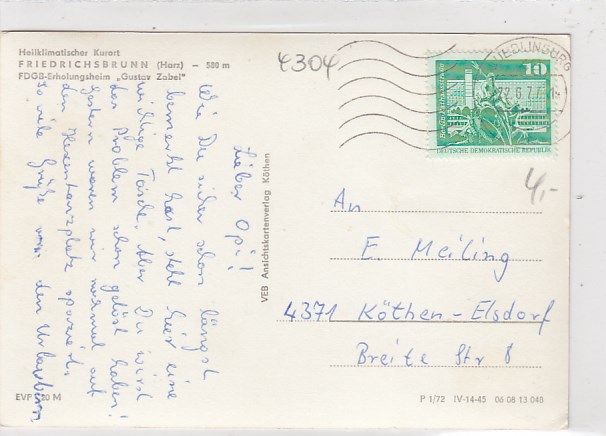 Heilklimatischer Kurort
FRIEDRICHSBRUNN (Harz) – 580 m
FDGB-Erholungsheim „Gustav Zabel"
4304
QUEDLINBURG
22.6.77
10
Berlin, Alexanderplatz
DEUTSCHE DEMOKRATISCHE REPUBLIK
4,-
Lieber Opi!
Wie Du sicher schon längst
bemerkt hast, steht hier eine
wichtige Taide. Aber Du wirst
das Problem schon gelöst haben!
Gestern waren wir nochmal auf
dem Hexentanzplatz spazieren.
So viele Grüße von den Urlaubern
VEB Ansichtskartenverlag Köthen
An
E. Meiling
4371 Köthen-Elsdorf
Breite Str 8
EVP 20 M
P 1/72 IV-14-45 06 08 13 048